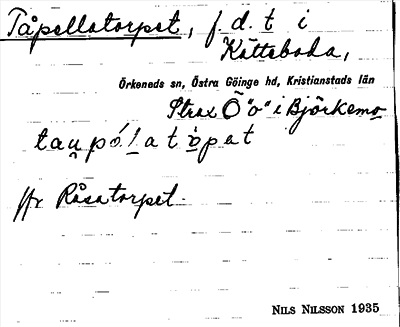 Tåpellatorpet, f. d. t i
Kätteboda,
Örkeneds sn, Östra Göinge hd, Kristianstads län
Strax Ö "o" i Björkemo
taupólatòpat
ffr Råsatorpet.
NILS NILSSON 1935